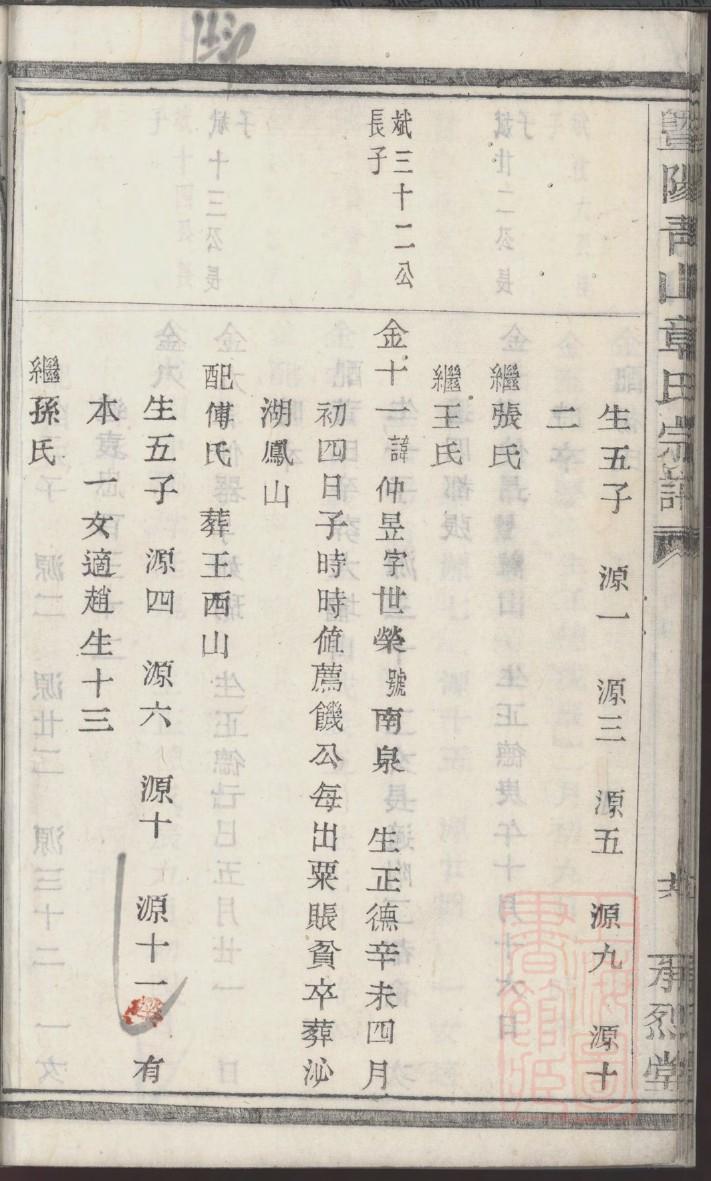 暨陽青山章氏宗譜
承烈堂
生五子　源一　源三　源五　源九　源十
二
繼張氏
繼王氏
斌三十二公
長子
金十一諱仲昱字世榮號南泉　生正德辛未四月
初四日子時時値薦饑公每出粟賬貧卒葬泌
湖鳳山
配傅氏　葬王西山
生五子　源四　源六　源十　源十一　有
本　一女適趙生十三
繼孫氏